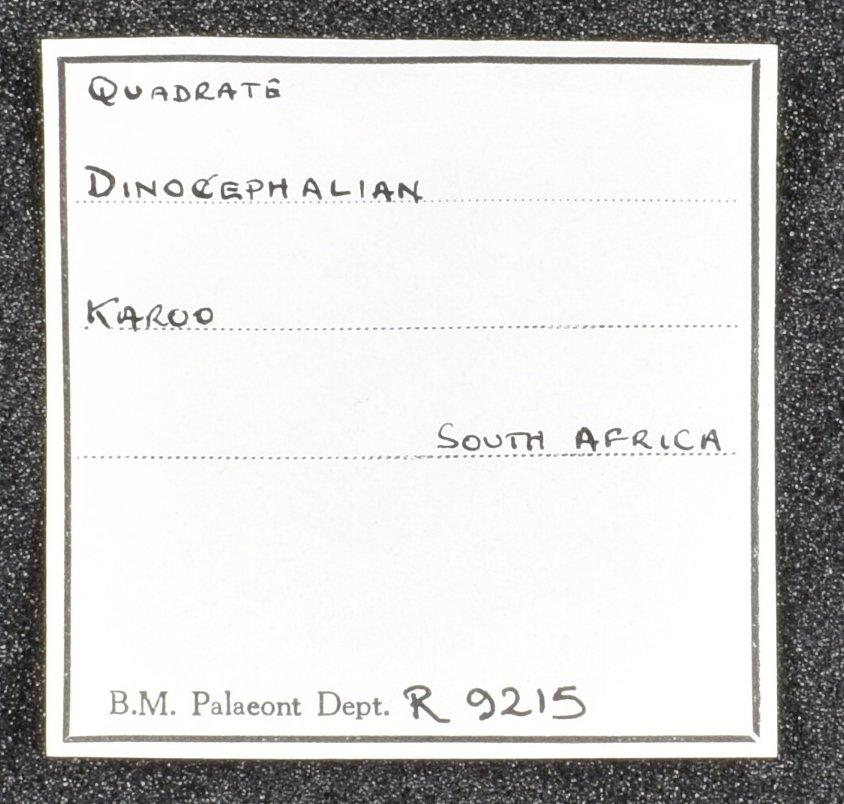 QUADRATE
DINOCEPHALIAN
KAROO
SOUTH AFRICA
B.M. Palaeont Dept. R 9215